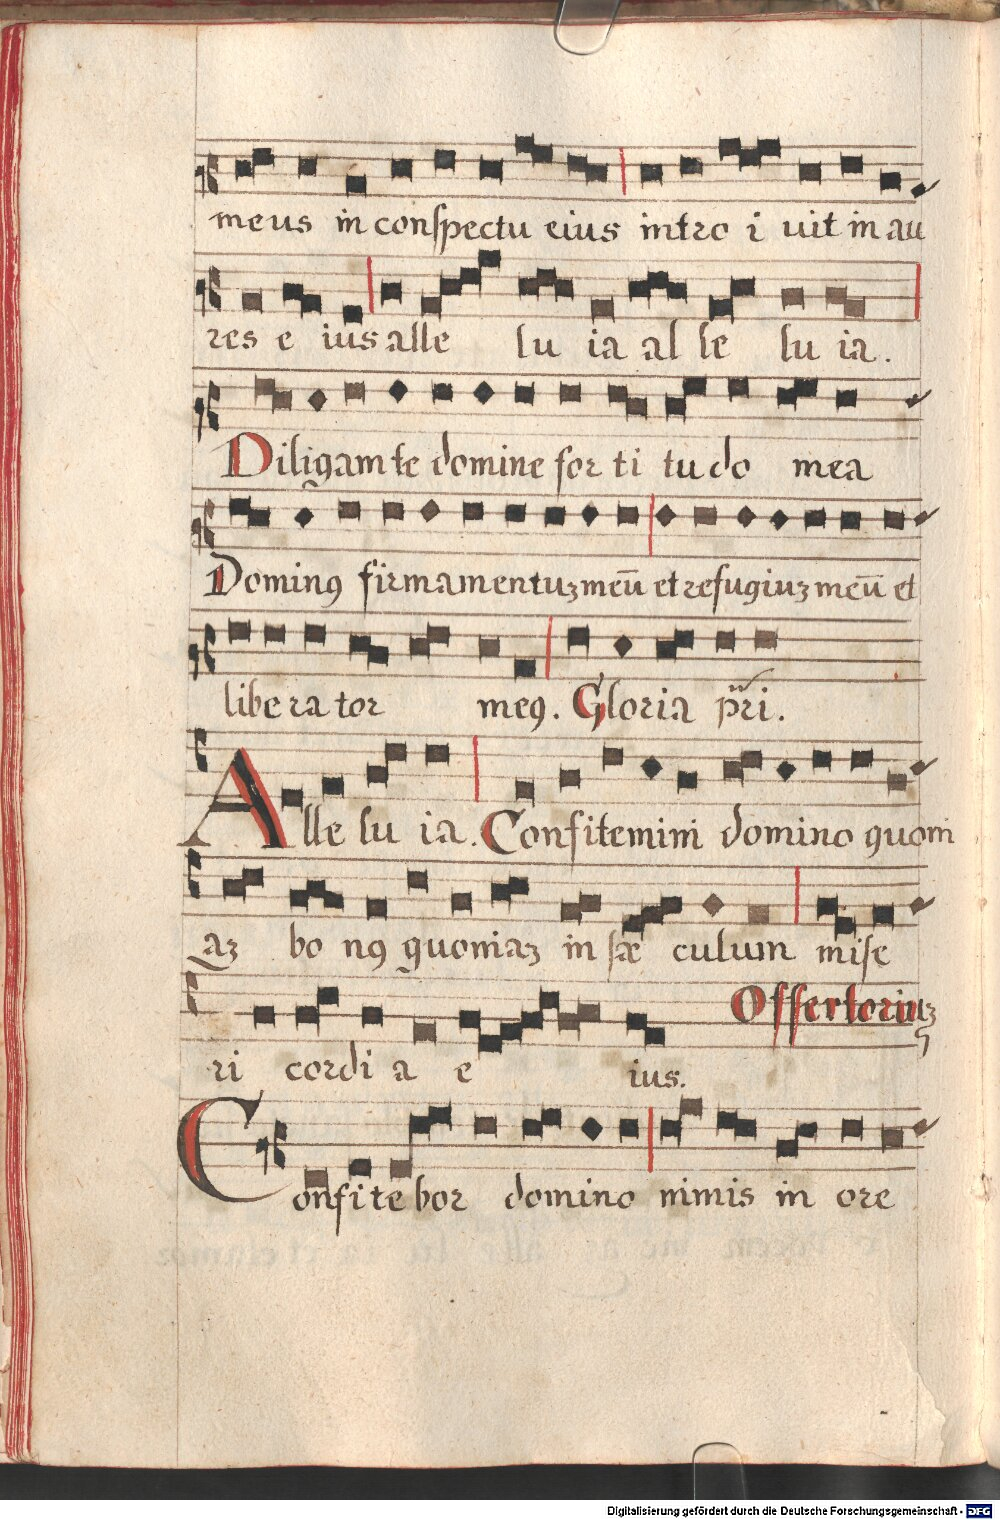 meus in conſpectu eius intro i uit in au
res e ius alle lu ia al le lu ia.
Diligam te domine for ti tu do mea
Dominꝯ firmamentuꝫ meū et refugiuꝫ meū et
libe ra tor meꝯ. Gloria pr̄i.
Alle lu ia. Confitemini domino quoni
aꝫ bo nꝯ quoniaꝫ in ſæ culum miſe
ri cordi a e ius.
Offertoriuꝫ
Confite bor domino nimis in ore
Digitalisierung gefördert durch die Deutsche Forschungsgemeinschaft - DFG